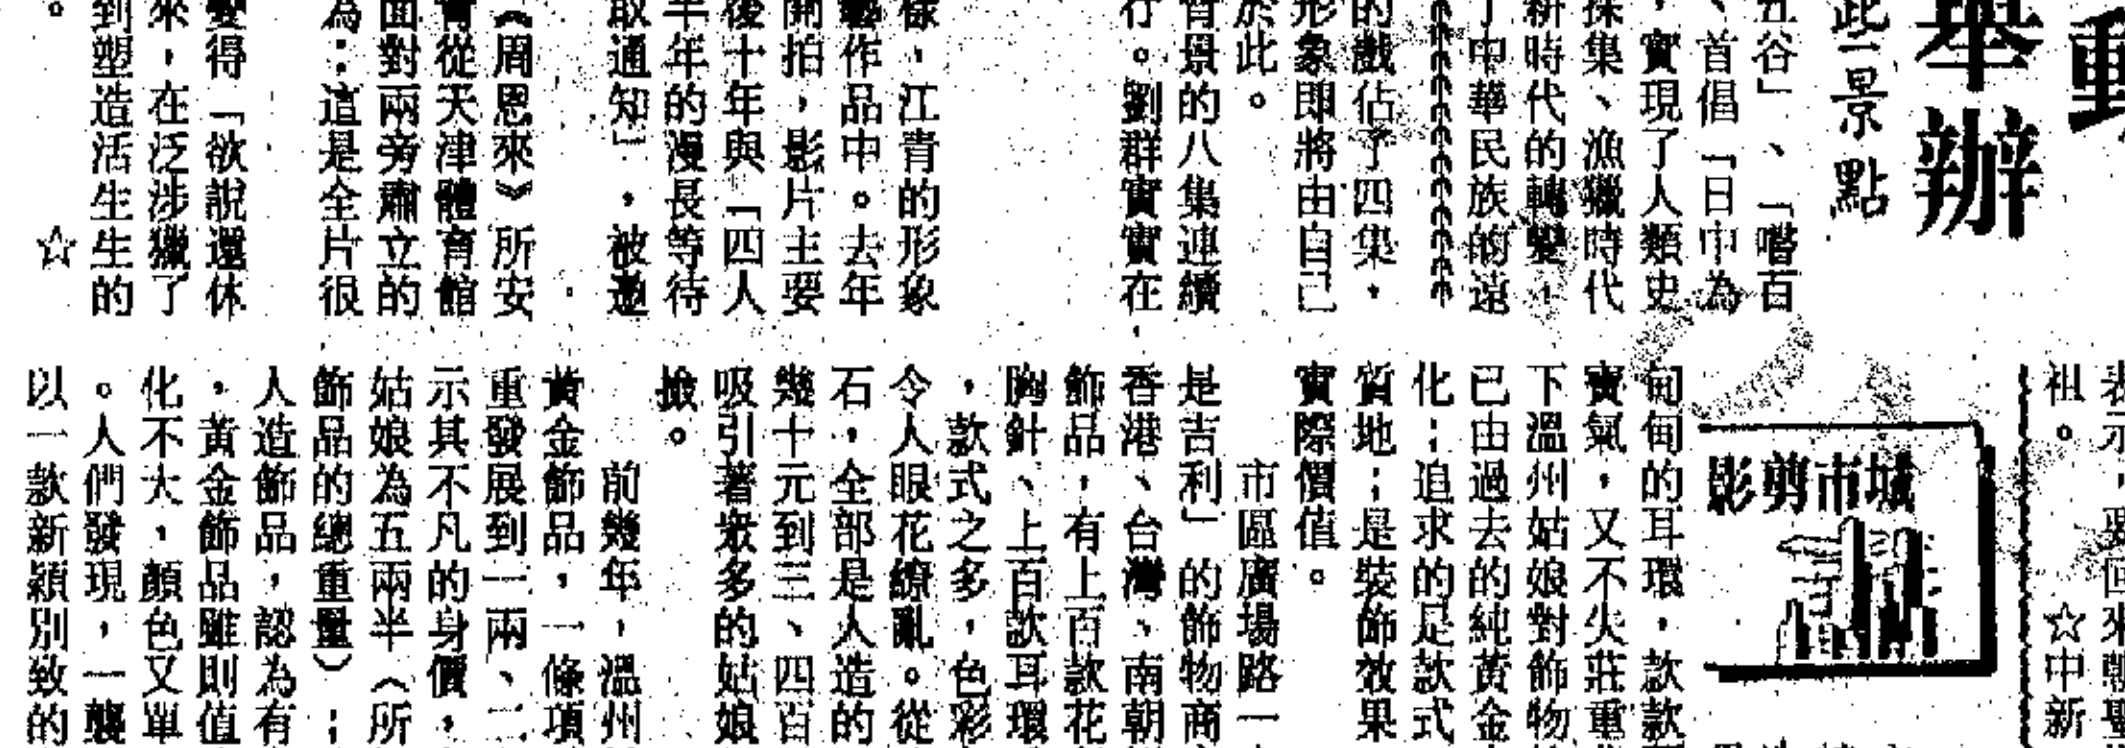 動
舉辦
此一景點
五谷」、「嚐百
、首倡「日中為
，實現了人類史
採集、漁獵時代
耕時代的轉變，
了中華民族的遠
的戲佔了四集，
形象即將由自己
於此。
背景的八集連續
行。劉群實實在
樣，江青的形象
藝作品中。去年
開拍，影片主要
後十年與「四人
半年的漫長等待
取通知」，被邀
《周恩來》所安
育從天津體育館
面對兩旁肅立的
為：這是全片很
變得「欲說還休
來，在泛涉獵了
到塑造活生生的
。☆
表示，要回來朝聖
祖。☆中新
城市剪影
甸甸的耳環，款款
寶氣，又不失莊重
下溫州姑娘對飾物
已由過去的純黃金
化；追求的是款式
質地；是裝飾效果
實際價值。
市區廣場路一
是吉利」的飾物商
香港、台灣、南朝
飾品，有上百款花
胸針、上百款耳環
，款式之多，色彩
令人眼花繚亂。從
石，全部是人造的
幾十元到三、四百
吸引著眾多的姑娘
撿。
前幾年，溫州
黃金飾品，一條項
重發展到一兩、二
示其不凡的身價，
姑娘為五兩半（所
飾品的總重量）；
人造飾品，認為有
，黃金飾品雖則值
化不大，顏色又單
。人們發現，一襲
以一款新穎別致的